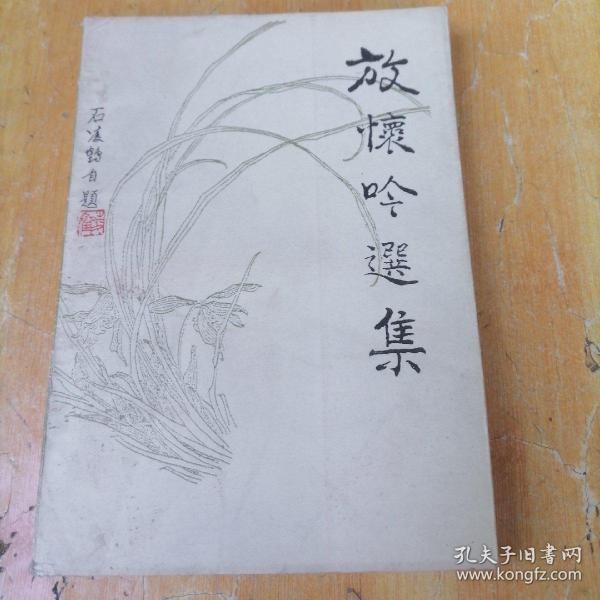 放懷吟選集
石凌鶴自題
孔夫子旧书网
www.kongfz.com